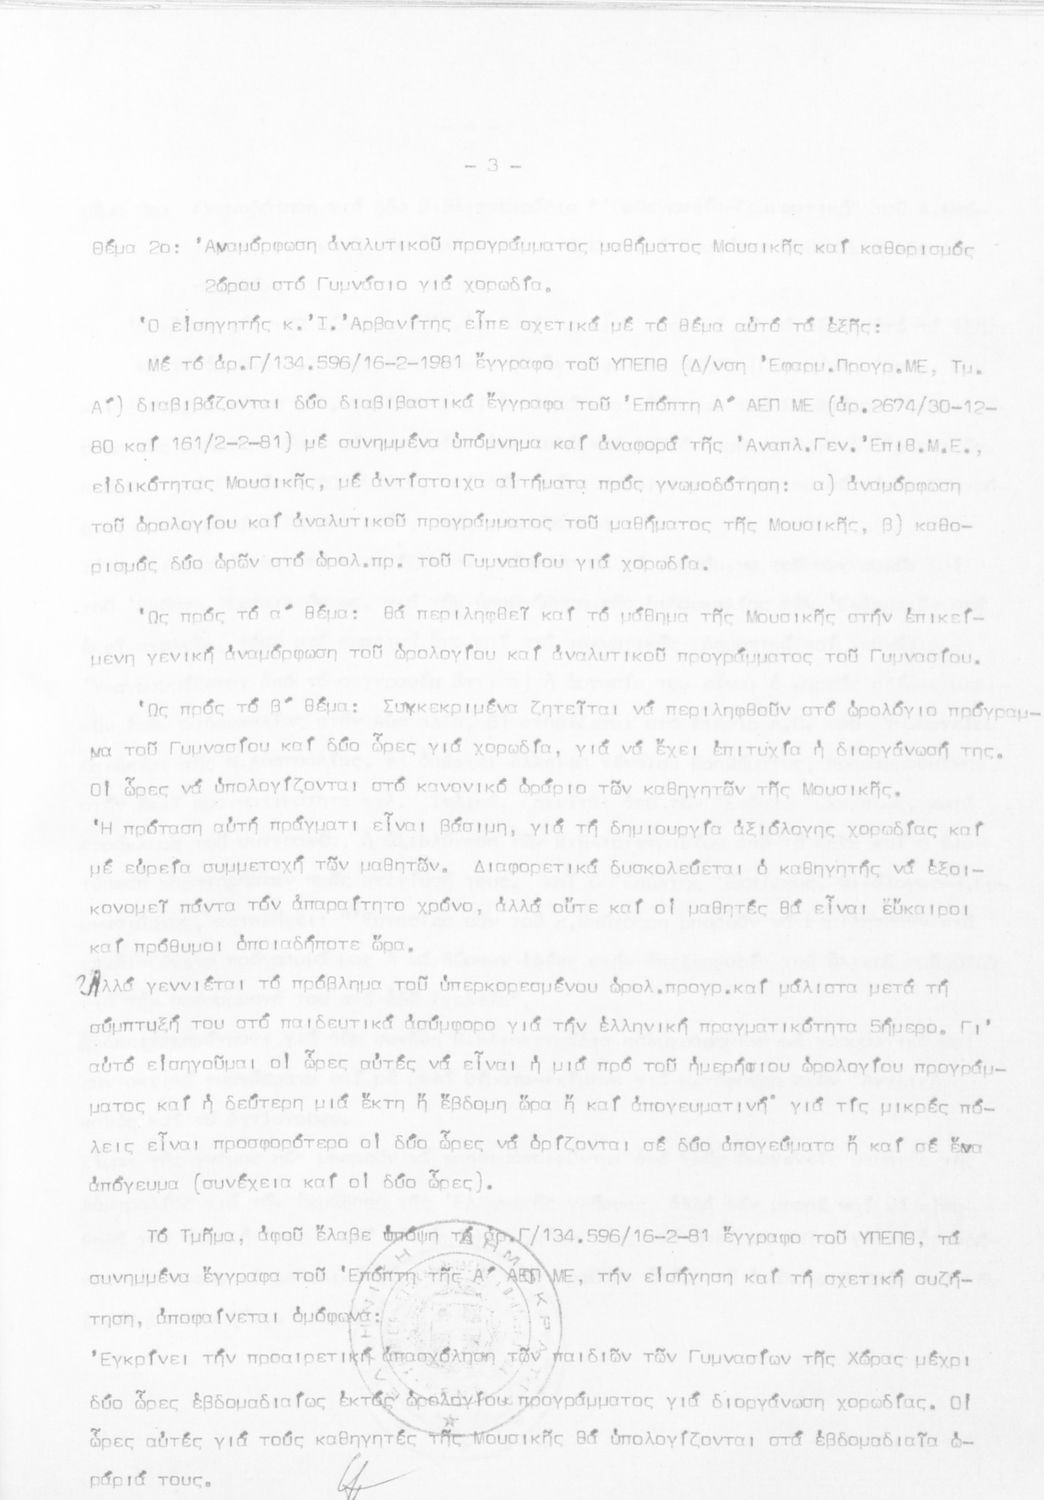 - 3 -
Θέμα 2ο: Ἀναμόρφωση ἀναλυτικοῦ προγράμματος μαθήματος Μουσικῆς καί καθορισμός
2ώρου στό Γυμνάσιο γιά χορωδία.
Ὁ εἰσηγητής κ.Ἰ.Ἀρβανίτης εἶπε σχετικά μέ τό θέμα αὐτό τά ἑξῆς:
Μέ τό ἀρ.Γ/134.596/16-2-1981 ἔγγραφο τοῦ ΥΠΕΠΘ (Δ/νση Ἐφαρμ.Προγρ.ΜΕ, Τμ.
Α΄) διαβιβάζονται δύο διαβιβαστικά ἔγγραφα τοῦ Ἐπόπτη Α΄ ΑΕΠ ΜΕ (ἀρ.2674/30-12-
80 καί 161/2-2-81) μέ συνημμένα ὑπόμνημα καί ἀναφορά τῆς Ἀναπλ.Γεν.Ἐπιθ.Μ.Ε.,
εἰδικότητας Μουσικῆς, μέ ἀντίστοιχα αἰτήματα πρός γνωμοδότηση: α) ἀναμόρφωση
τοῦ ὡρολογίου καί ἀναλυτικοῦ προγράμματος τοῦ μαθήματος τῆς Μουσικῆς, β) καθο-
ρισμός δύο ὡρῶν στό ὡρολ.πρ. τοῦ Γυμνασίου γιά χορωδία.
Ὡς πρός τό α΄ θέμα: θά περιληφθεῖ καί τό μάθημα τῆς Μουσικῆς στήν ἐπικεί-
μενη γενική ἀναμόρφωση τοῦ ὡρολογίου καί ἀναλυτικοῦ προγράμματος τοῦ Γυμνασίου.
Ὡς πρός τό β΄ θέμα: Συγκεκριμένα ζητεῖται νά περιληφθοῦν στό ὡρολόγιο πρόγραμ-
μα τοῦ Γυμνασίου καί δύο ὧρες γιά χορωδία, γιά νά ἔχει ἐπιτυχία ἡ διοργάνωσή της.
Οἱ ὧρες νά ὑπολογίζονται στό κανονικό ὡράριο τῶν καθηγητῶν τῆς Μουσικῆς.
Ἡ πρόταση αὐτή πράγματι εἶναι βάσιμη, γιά τή δημιουργία ἀξιόλογης χορωδίας καί
μέ εὐρεία συμμετοχή τῶν μαθητῶν. Διαφορετικά δυσκολεύεται ὁ καθηγητής νά ἐξοι-
κονομεῖ πάντα τόν ἀπαραίτητο χρόνο, ἀλλά οὔτε καί οἱ μαθητές θά εἶναι εὔκαιροι
καί πρόθυμοι ὁποιαδήποτε ὥρα.
Ἀλλά γεννιέται τό πρόβλημα τοῦ ὑπερκορεσμένου ὡρολ.προγρ.καί μάλιστα μετά τή
σύμπτυξή του στό παιδευτικά ἀσύμφορο γιά τήν ἑλληνική πραγματικότητα 5ήμερο. Γι'
αὐτό εἰσηγοῦμαι οἱ ὧρες αὐτές νά εἶναι ἡ μιά πρό τοῦ ἡμερήσιου ὡρολογίου προγράμ-
ματος καί ἡ δεύτερη μιά ἕκτη ἤ ἕβδομη ὥρα ἤ καί ἀπογευματινή· γιά τίς μικρές πό-
λεις εἶναι προσφορότερο οἱ δύο ὧρες νά ὁρίζονται σέ δύο ἀπογεύματα ἤ καί σέ ἕνα
ἀπόγευμα (συνέχεια καί οἱ δύο ὧρες).
Τό Τμῆμα, ἀφοῦ ἔλαβε ὑπόψη τό ἀρ.Γ/134.596/16-2-81 ἔγγραφο τοῦ ΥΠΕΠΘ, τά
συνημμένα ἔγγραφα τοῦ Ἐπόπτη τῆς Α΄ ΑΕΠ ΜΕ, τήν εἰσήγηση καί τή σχετική συζή-
τηση, ἀποφαίνεται ὁμόφωνα:
Ἐγκρίνει τήν προαιρετική ἀπασχόληση τῶν παιδιῶν τῶν Γυμνασίων τῆς Χώρας μέχρι
δύο ὧρες ἑβδομαδιαίως ἐκτός ὡρολογίου προγράμματος γιά διοργάνωση χορωδίας. Οἱ
ὧρες αὐτές γιά τούς καθηγητές τῆς Μουσικῆς θά ὑπολογίζονται στά ἑβδομαδιαῖα ὡ-
ράριά τους.